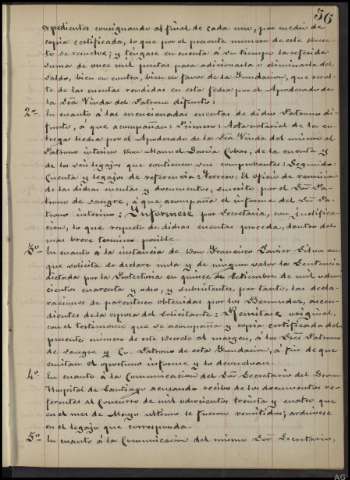 36
expediente consignando al final de cada uno, por medio de
copia certificada, lo que por el presente número de este decre-
to se resuelve; y téngase en cuenta á su tiempo la referida
suma de once mil pesetas para adicionarla ó eliminarla del
saldo, bien en contra, bien en favor de la fundacion, que resul-
te de las cuentas rendidas en esta fecha por el Apoderado de
la Sra Viuda del Patrono difunto:
2º En cuanto á las mencionadas cuentas de dicho Patrono di-
funto, á que acompañan: Primero: Acta notarial de la en-
trega hecha por el Apoderado de la Sra Viuda del mismo al
Patrono interino Don Manuel García Cobas, de la cuenta y
de los seis legajos que contienen sus comprobantes: Segundo:
Cuenta y legajos de referencia: Tercero: El oficio de remisión
de las dichas cuentas y documentos, suscrito por el Sr Pa-
trono de sangre, á que acompaña el informe del Sr Pa-
trono interino: Infórmese por Secretaría, con justifica-
cion, lo que respecto de dichas cuentas proceda, dentro del
mas breve término posible
3º En cuanto á la instancia de Don Francisco Javier
que solicita se declare nula y de ningun valor la Sentencia
dictada por la Protectoría en quince de Setiembre de mil ocho-
cientos cuarenta y ocho, y subsistentes, por tanto, las decla-
raciones de parentesco obtenidas por los Bermudez, ascen-
dientes de la esposa del solicitante: Remítase original,
con el testimonio que se acompaña y copia certificada del
presente número de este decreto al margen, á los Sres Patrono
de sangre y Co-Patrono de esta fundacion, á fin de que
emitan el oportuno informe y lo devuelvan:
4º En cuanto á la Comunicacion del Sr Secretario del Gran
Hospital de Santiago acusando recibo de los documentos re-
ferentes al Concurso de mil ochocientos treinta y cuatro que
en el mes de Mayo último le fueron remitidos; archívese
en el legajo que corresponda.
5º En cuanto á la Comunicación del mismo Sor Secretario,